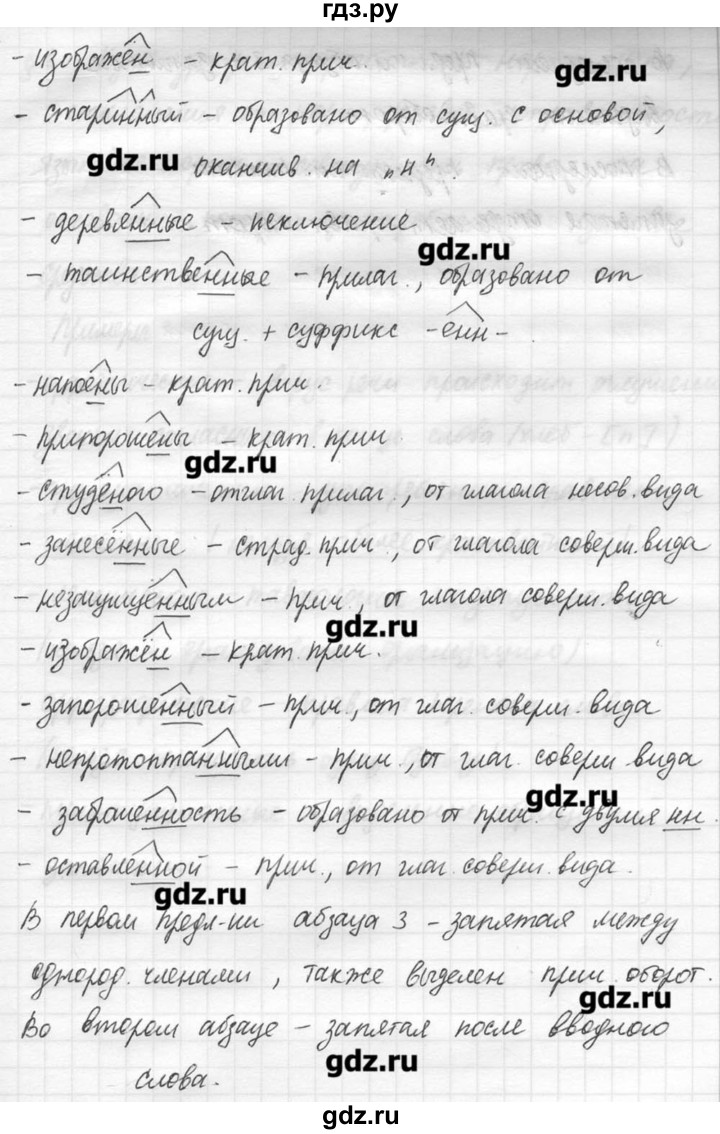 гдз.ру
- изображён - крат. прич.
gdz.ru
- старинный - образовано от сущ. с основой,
gdz.ru оканчив. на „н".
- деревянные - исключение
gdz.ru
- таинственные - прилаг., образовано от
сущ. + суффикс -енн-.
- напоены - крат. прич.
- припорошены - крат. прич.
gdz.ru
- студёного - отглаг. прилаг., от глагола несов. вида
- занесённые - страд. прич., от глагола соверш. вида
- незащищённым - прич., от глагола соверш. вида
gdz.ru
- изображён - крат. прич.
- запорошенный - прич., от глаг. соверш. вида
- непротоптанными - прич., от глаг. соверш. вида
gdz.ru
- заброшенность - образовано от прич. с двумя нн.
- оставленной - прич., от глаг. соверш. вида.
gdz.ru
В первом предл-ии абзаца 3 - запятая между
однород. членами, также выделен прич. оборот.
gdz.ru
Во втором абзаце - запятая после вводного
gdz.ru
слова.
gdz.ru